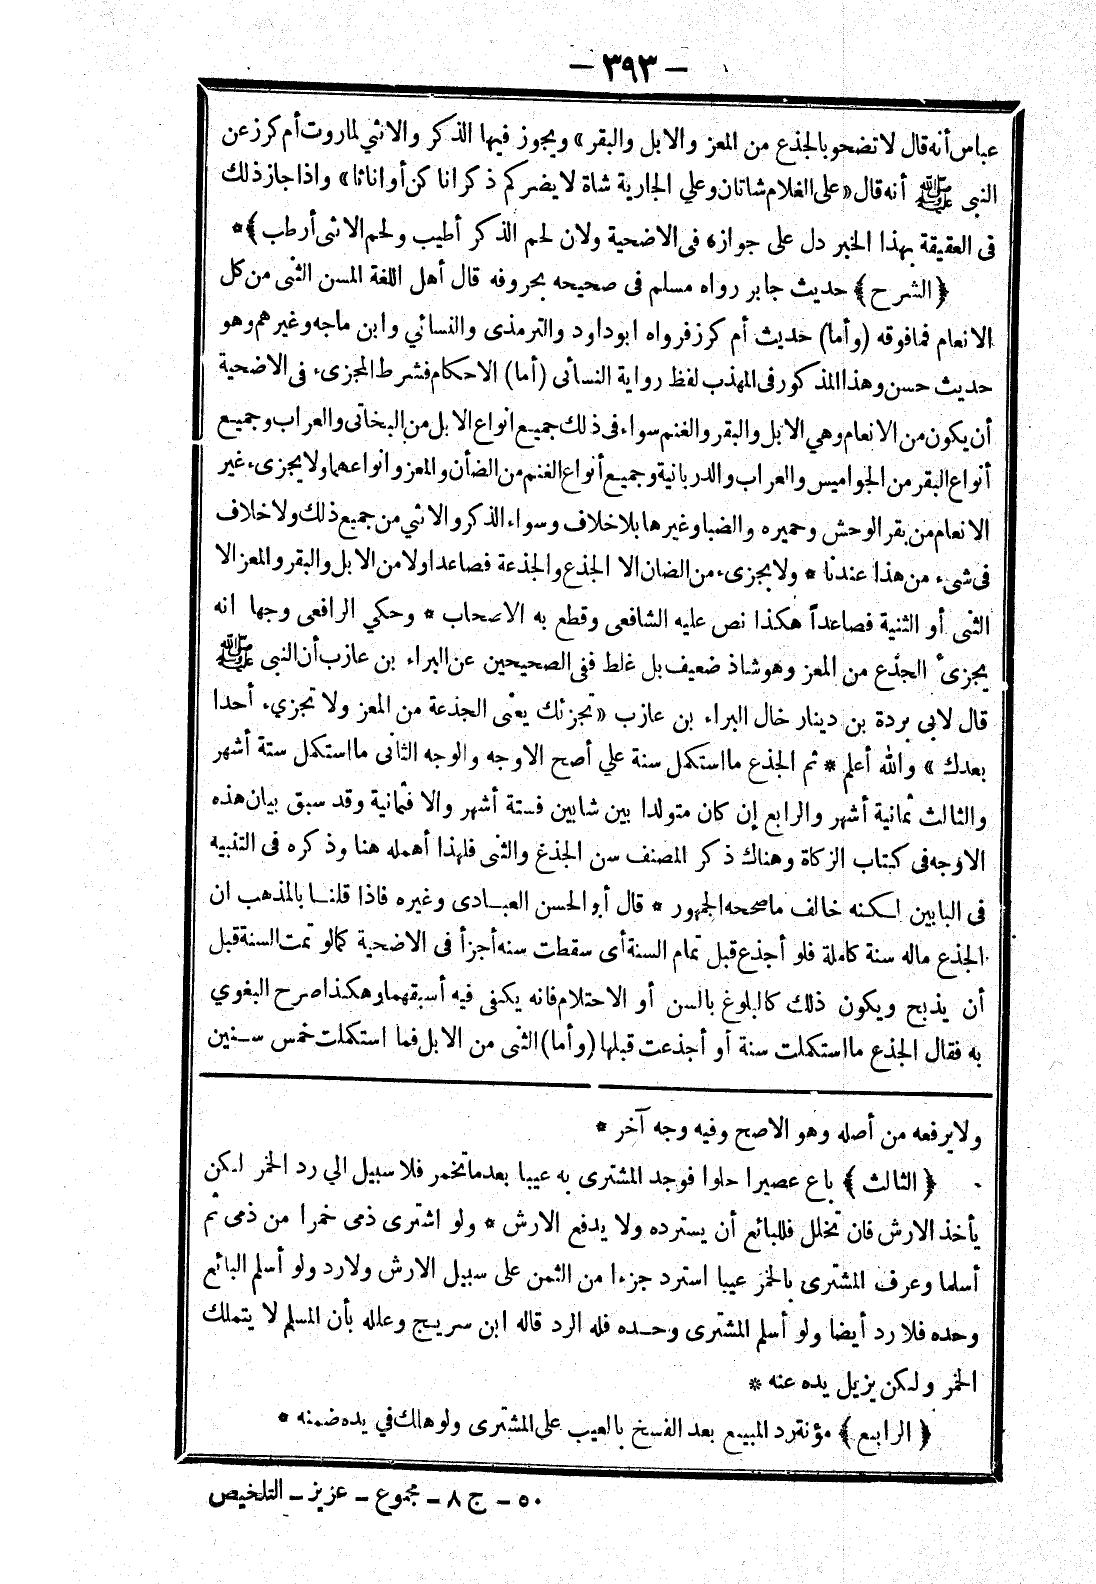 - ٣٩٣ -
عباس أنه قال لا تضحوا بالجذع من المعز والابل والبقر » ويجوز فيها الذكر والانثي لما روت أم كرز عن
النبى ﷺ أنه قال « على الغلام شاتان وعلي الجارية شاة لا يضركم ذكرانا كن أو اناثا » واذا جاز ذلك
فى العقيقة بهذا الخبر دل على جوازه فى الاضحية ولان لحم الذكر أطيب ولحم الانثى أرطب ﴾ *
﴿ الشرح ﴾ حديث جابر رواه مسلم فى صحيحه بحروفه قال أهل اللغة المسن الثنى من كل
الانعام فما فوقه (وأما) حديث أم كرز فرواه ابوداود والترمذى والنسائي وابن ماجه وغيرهم وهو
حديث حسن وهذا المذكور فى المهذب لفظ رواية النسائى (أما) الاحكام فشرط المجزىء فى الاضحية
أن يكون من الانعام وهي الابل والبقر والغنم سواء فى ذلك جميع انواع الابل من البخاتى والعراب وجميع
أنواع البقر من الجواميس والعراب والدربانية وجميع أنواع الغنم من الضأن والمعز وانواعهما ولا يجزىء غير
الانعام من بقر الوحش وحميره والضبا وغيرها بلا خلاف وسواء الذكر والانثي من جميع ذلك ولا خلاف
فى شىء من هذا عندنا * ولا يجزىء من الضان الا الجذع والجذعة فصاعدا ولا من الابل والبقر والمعز الا
الثنى أو الثنية فصاعداً هكذا نص عليه الشافعى وقطع به الاصحاب * وحكي الرافعى وجها انه
يجزئ الجذع من المعز وهو شاذ ضعيف بل غلط ففى الصحيحين عن البراء بن عازب أن النبى ﷺ
قال لابى بردة بن دينار خال البراء بن عازب « تجزئك يعنى الجذعة من المعز ولا تجزىء أحدا
بعدك » والله أعلم * ثم الجذع ما استكمل سنة علي أصح الاوجه والوجه الثانى ما استكمل ستة أشهر
والثالث ثمانية أشهر والرابع إن كان متولدا بين شابين فستة أشهر والا فثمانية وقد سبق بيان هذه
الاوجه فى كتاب الزكاة وهناك ذكر المصنف سن الجذع والثنى فلهذا أهمله هنا وذكره فى التنبيه
فى البابين لكنه خالف ما صححه الجمهور * قال أبو الحسن العبادى وغيره فاذا قلنا بالمذهب ان
الجذع ماله سنة كاملة فلو أجذع قبل تمام السنة أى سقطت سنه أجزأ فى الاضحية كما لو تمت السنة قبل
أن يذبح ويكون ذلك كالبلوغ بالسن أو الاحتلام فانه يكفى فيه أسبقهما وهكذا صرح البغوي
به فقال الجذع ما استكملت سنة أو أجذعت قبلها (وأما) الثنى من الابل فما استكملت خمس سنين
ولا يرفعه من أصله وهو الاصح وفيه وجه آخر *
﴿ الثالث ﴾ باع عصيرا حلوا فوجد المشترى به عيبا بعد ما تخمر فلا سبيل الي رد الخمر لكن
يأخذ الارش فان تخلل فللبائع أن يسترده ولا يدفع الارش * ولو اشترى ذمى خمرا من ذمى ثم
أسلما وعرف المشترى بالخمر عيبا استرد جزءا من الثمن على سبيل الارش ولا رد ولو أسلم البائع
وحده فلا رد أيضا ولو أسلم المشترى وحده فله الرد قاله ابن سريج وعلله بأن المسلم لا يتملك
الخمر ولكن يزيل يده عنه *
﴿ الرابع ﴾ مؤنة رد المبيع بعد الفسخ بالعيب على المشترى ولو هلك في يده ضمنه *
٥٠ - ج ٨ - مجموع - عزيز - التلخيص